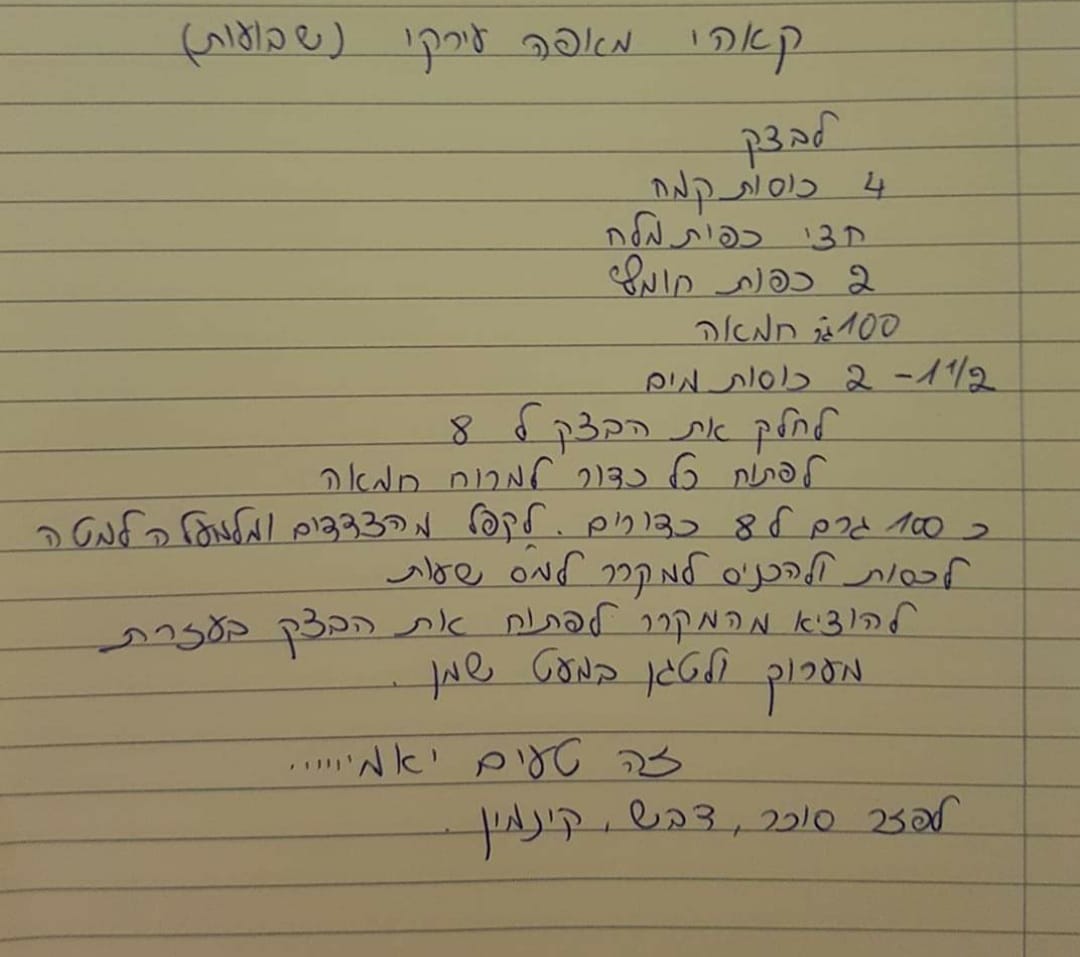 קאהי מאפה עירקי (שבועות)
לבצק
4 כוסות קמח
חצי כפית מלח
2 כפות חומץ
100 גר' חמאה
1 1/2 - 2 כוסות מים
לחלק את הבצק ל 8
לפתוח כל כדור למרוח חמאה
כ 100 גרם ל 8 כדורים. לקפל מהצדדים ומלמעלה למטה
לכסות ולהכניס למקרר למס' שעות
להוציא מהמקרר לפתוח את הבצק בעזרת
מערוק ולטגן במעט שמן.
זה טעים יאמיייייי....
לפזר סוכר, דבש, קינמין.